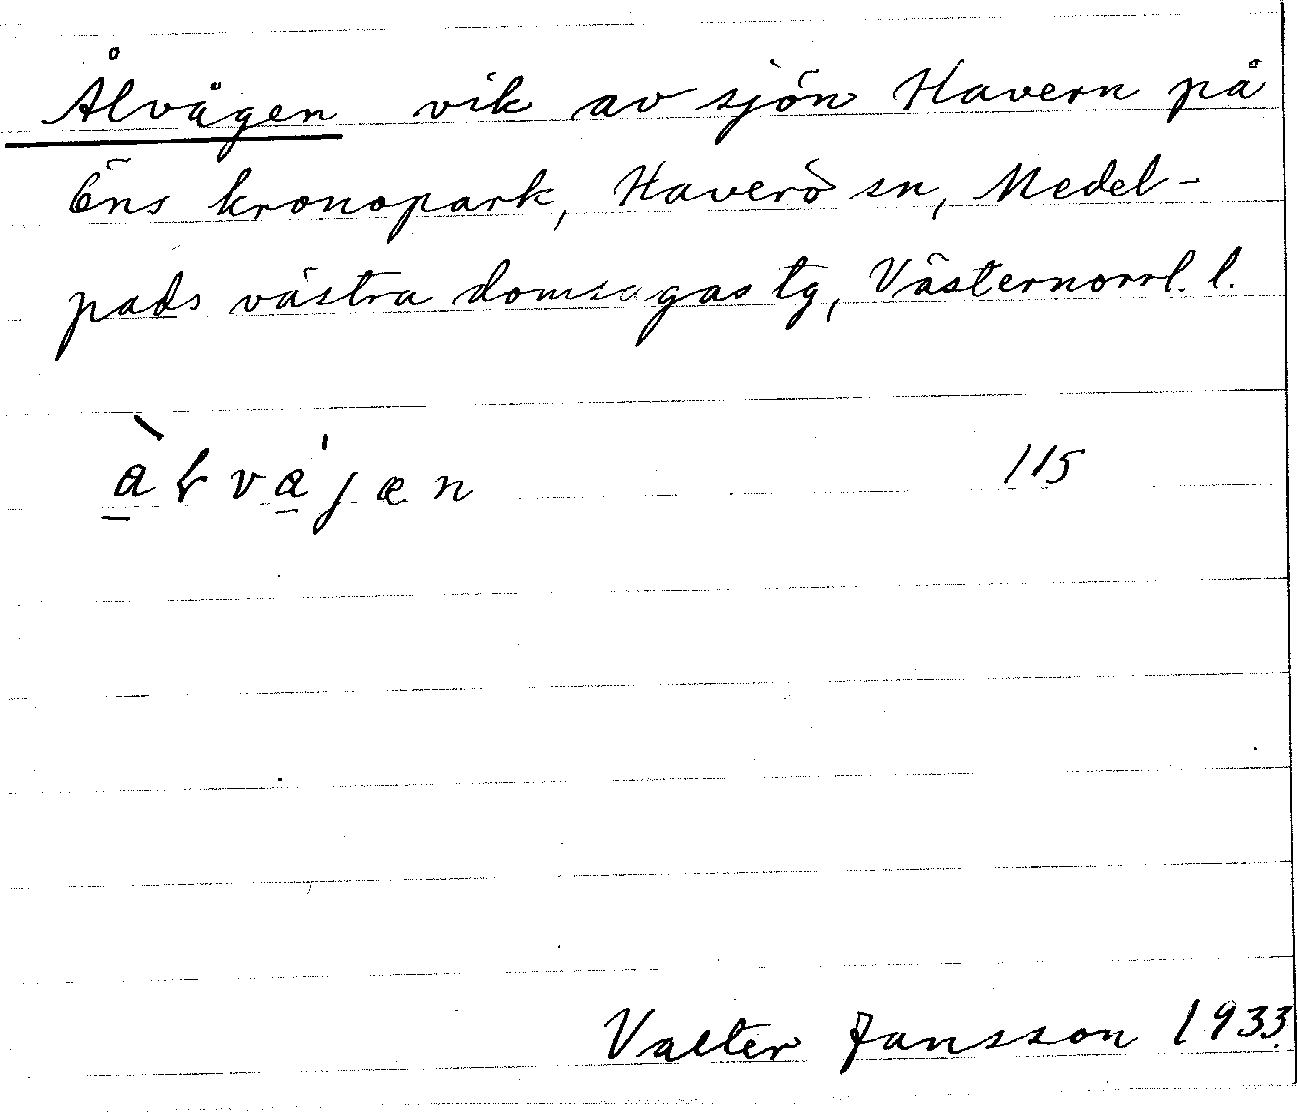 Ålvågen vik av sjön Havern på
Öns kronopark, Haverö sn, Medel-
pads västra domsagas tg, Västernorrl. l.
àɽva̠'jæn 115
Valter Jansson 1933.